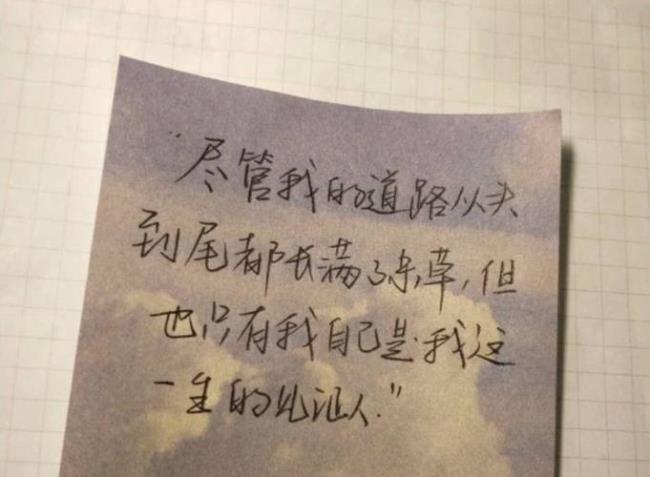 “尽管我的道路从头
到尾都长满了杂草,但
也只有我自己是我这
一生的见证人.”